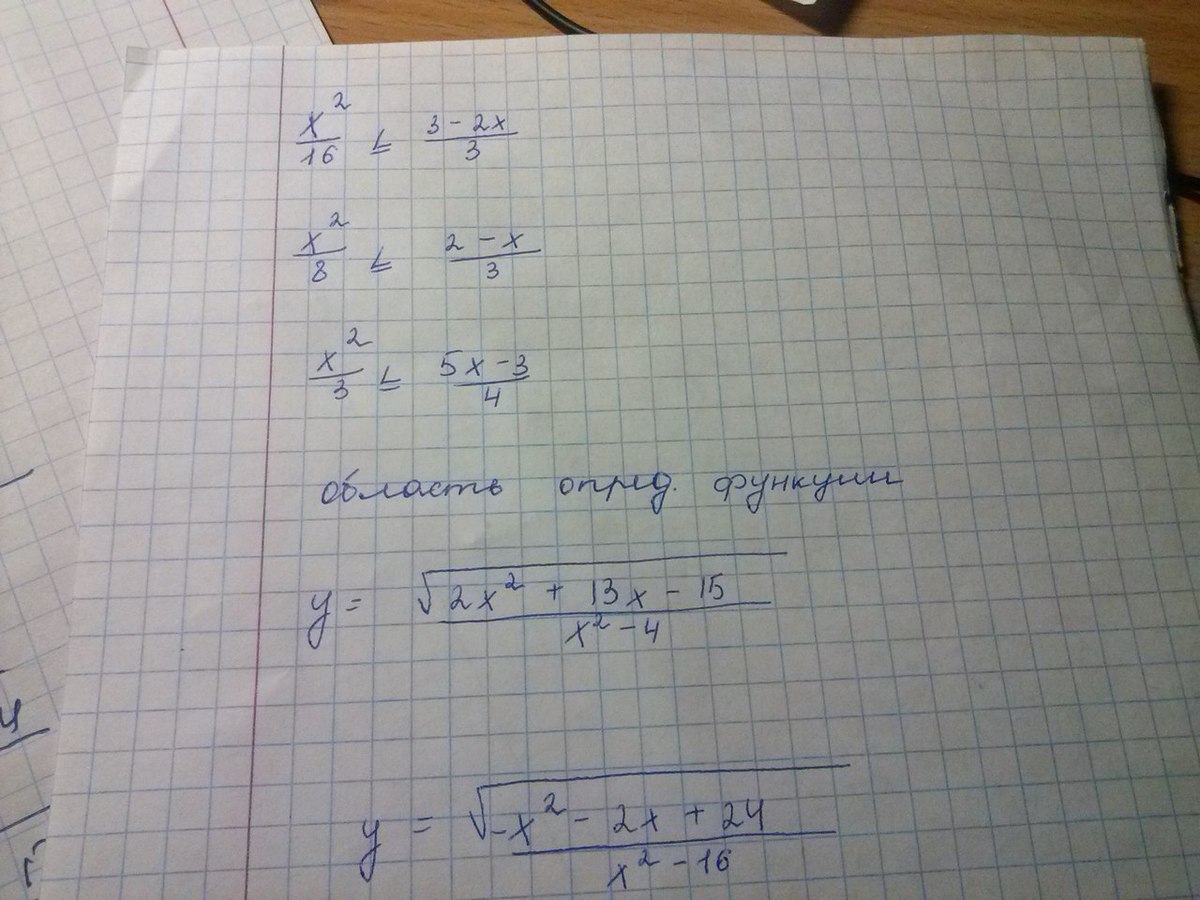 x²/16 ≤ (3 - 2x)/3
x²/8 ≤ (2 - x)/3
x²/3 ≤ (5x - 3)/4
область опред. функции
y = √(2x² + 13x - 15)/(x² - 4)
y = √(-x² - 2x + 24)/(x² - 16)